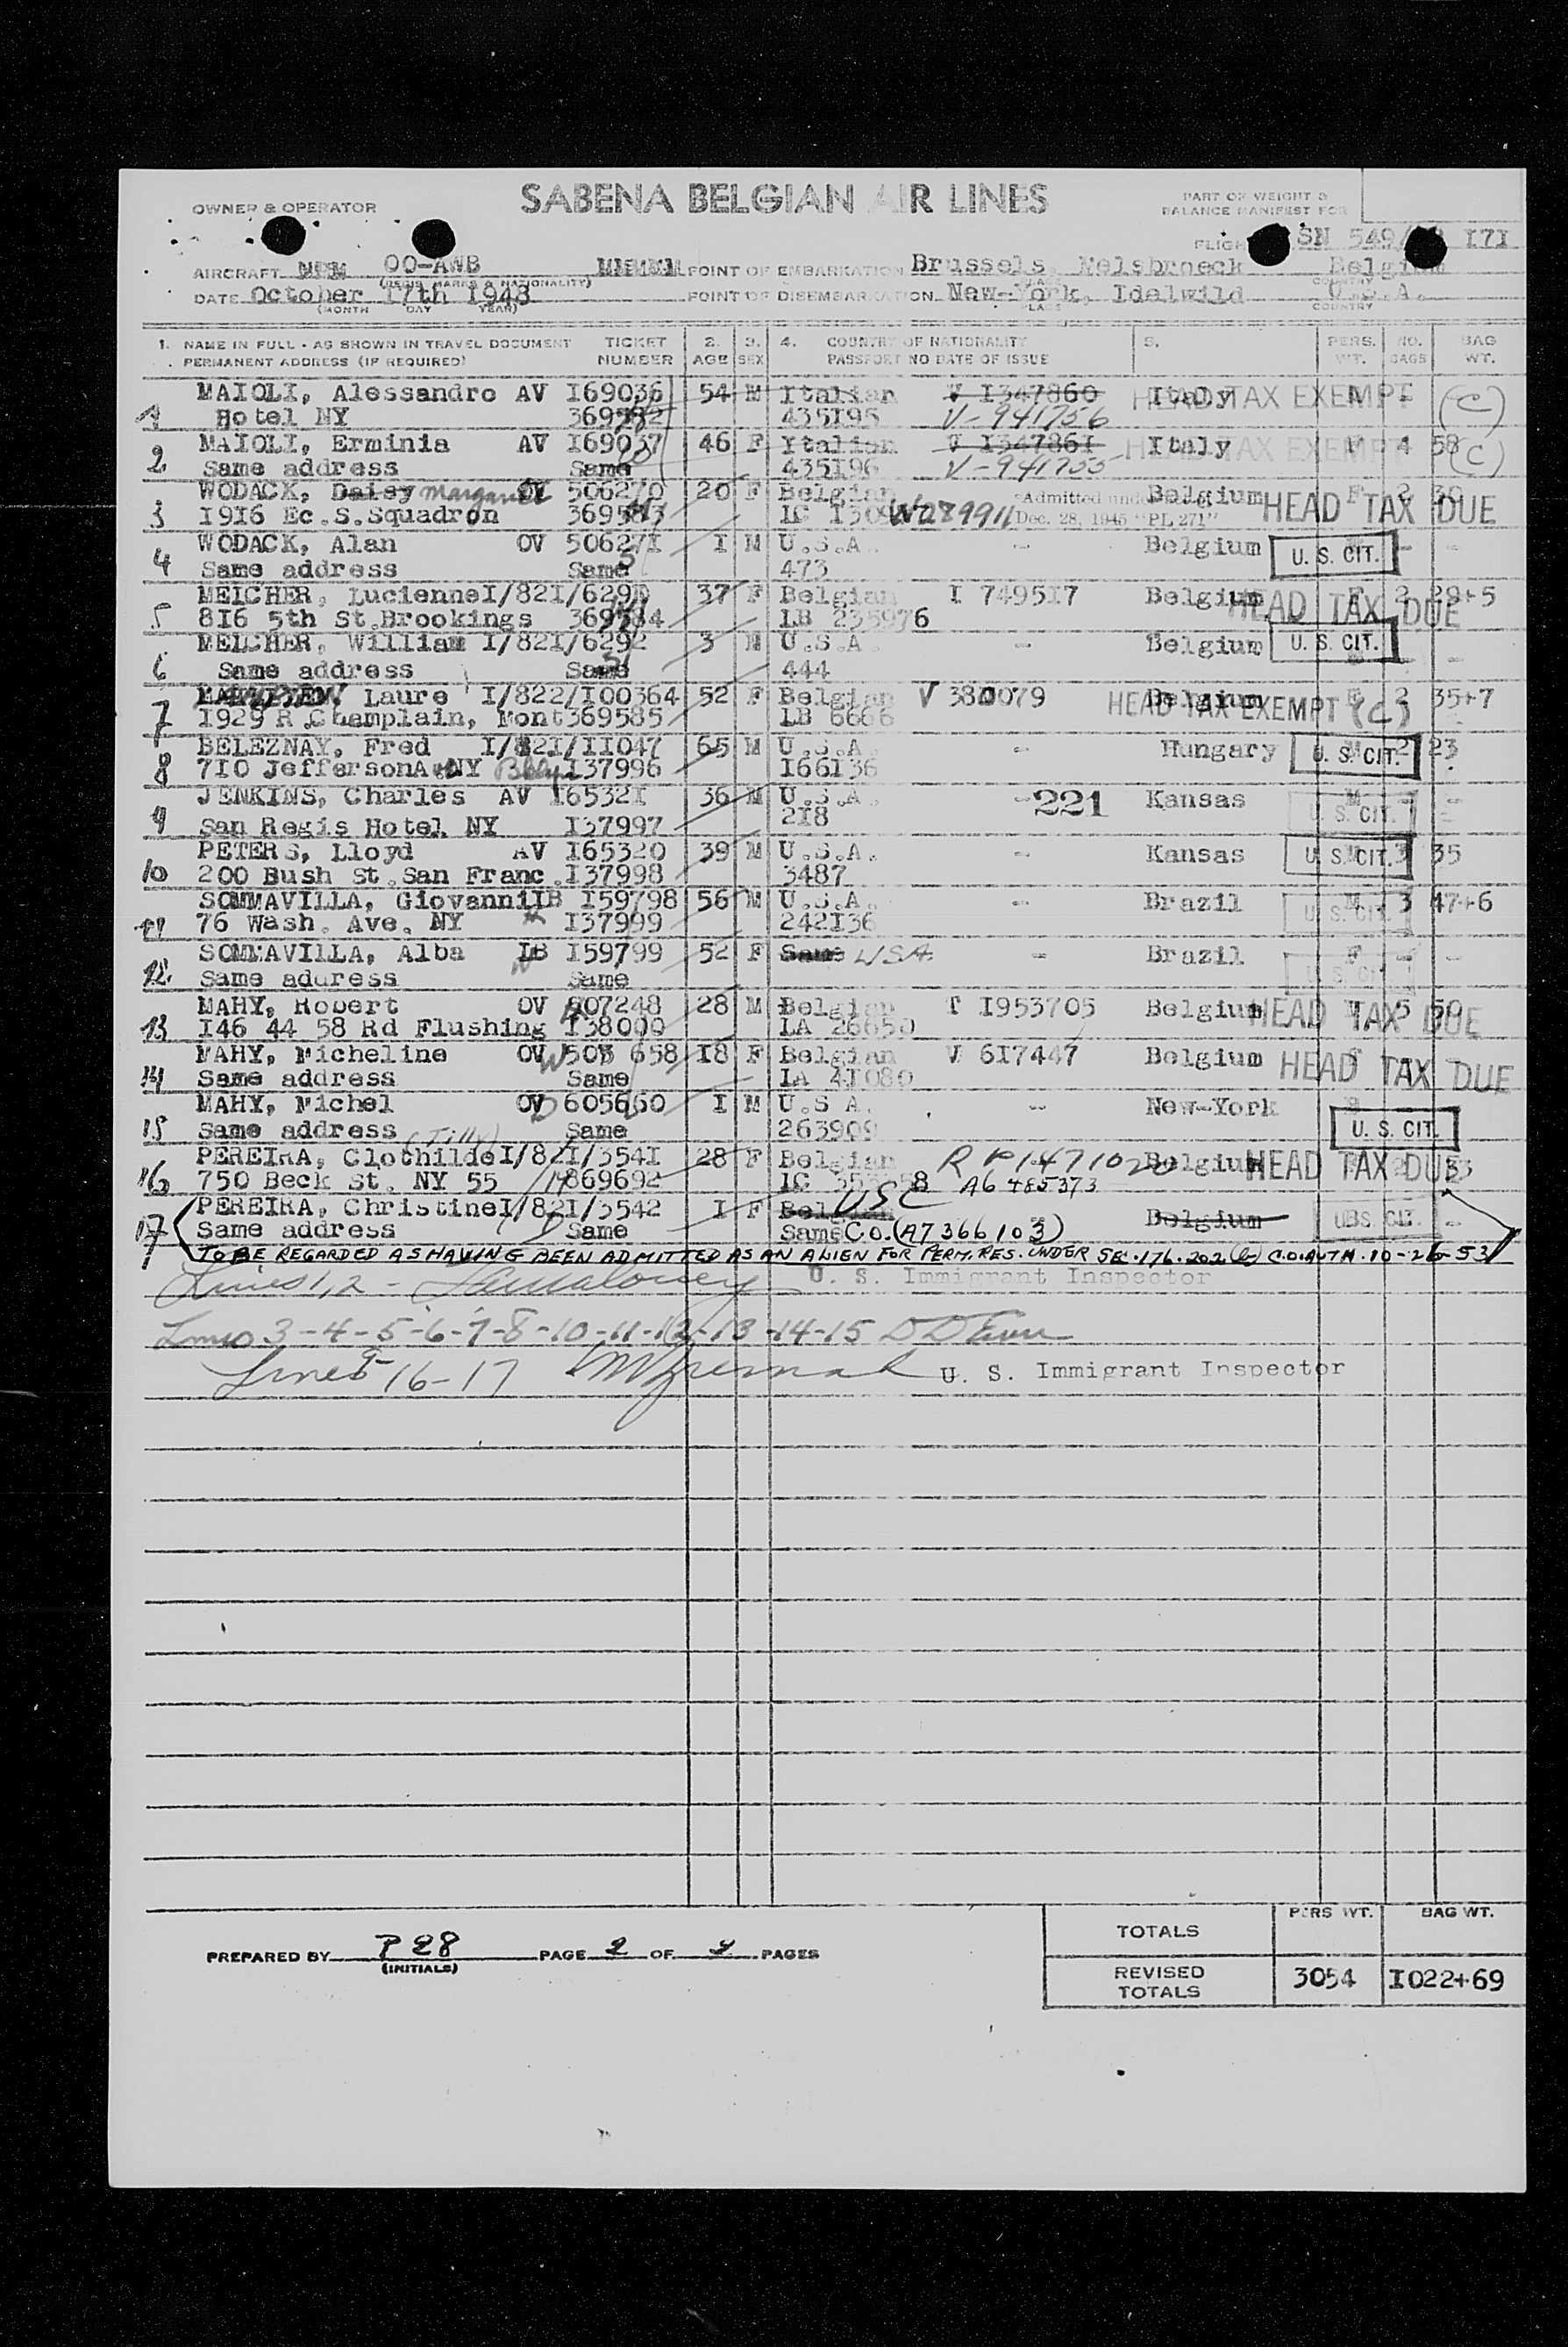 SABENA BELGIAN AIR LINES
OWNER & OPERATOR
PART OF WEIGHT &
BALANCE MANIFEST FOR
FLIGHT SN 549/ I7I
AIRCRAFT OO-AWB POINT OF EMBARKATION Brussels, Melsbroeck Belgium
(REGIS. MARKS & NATIONALITY) PLACE COUNTRY
DATE October 17th 1948 POINT OF DISEMBARKATION New-York, Idelwild U.S.A.
(MONTH DAY YEAR) PLACE COUNTRY
1. NAME IN FULL - AS SHOWN IN TRAVEL DOCUMENT TICKET 2. 3. 4. COUNTRY OF NATIONALITY 5. PERS. NO. BAG
PERMANENT ADDRESS (IF REQUIRED) NUMBER AGE SEX PASSPORT NO DATE OF ISSUE WT. BAGS WT.
MAIOLI, Alessandro AV I69036 54 M Italian V I347860 Italy HEAD TAX EXEMPT M - (C)
1 Hotel NY 369582 435I95 V-941756
MAIOLI, Erminia AV I69037 46 F Italian V I34786I Italy HEAD TAX EXEMPT 4 58 (C)
2 Same address Same 435I96 V-941755
WODACK, Daisy OV 506270 20 F Belgian Admitted under Belgium F 2 30 HEAD TAX DUE
3 I9I6 Ec.S.Squadron 369583 IC W289911 Dec. 28, 1945 "PL 271"
WODACK, Alan OV 50627I I M U.S.A. - Belgium U. S. CIT. - -
4 Same address Same 473
MEICHER, Lucienne I/82I/629 37 F Belgian I 7495I7 Belgium F 2 29+5
5 8I6 5th St.Brookings 369584 LB 235976 HEAD TAX DUE
MELCHER, William I/82I/6292 3 M U.S.A - Belgium U. S. CIT. - -
6 Same address Same 444
Laure I/822/I00364 52 F Belgian V 380079 Belgium F 2 35+7
7 I929 R Champlain, Mont 369585 LB 6666 HEAD TAX EXEMPT (C)
BELEZNAY, Fred I/82I/II047 65 M U.S.A - Hungary U. S. CIT. M 2 23
8 7I0 JeffersonAve NY Bklyn I37996 I66I36
JENKINS, Charles AV I6532I 36 M U.S.A. - 221 Kansas M - -
9 San Regis Hotel NY I37997 2I8 U. S. CIT.
PETERS, Lloyd AV I65320 39 M U.S.A. - Kansas U. S. CIT. M 3 35
10 200 Bush St.San Franc. I37998 3487
SOMMAVILLA, Giovanni IB I59798 56 M U.S.A. - Brazil U. S. CIT. M 3 47+6
11 76 Wash. Ave. NY I37999 242I36
SOMMAVIllA, Alba IB I59799 52 F Same USA - Brazil F - -
12 Same address Same U. S. CIT.
MAHY, Robert OV 607248 28 M Belgian T I953705 Belgium M 5 50 HEAD TAX DUE
13 I46 44 58 Rd Flushing I38000 LA 26650
MAHY, Micheline OV 505 658 I8 F Belgian V 6I7447 Belgium HEAD TAX DUE
14 Same address Same LA 4I080
MAHY, Michel OV 605660 I M U.S A. - New-York
15 Same address Same 263909 U. S. CIT.
(Tilly)
PEREIRA, Clothilde I/82I/354I 28 F Belgian R P1471020 Belgium HEAD TAX DUE
16 750 Beck St. NY 55 869692 IC A6 485373
PEREIRA, Christine I/82I/3542 I F Belgian USC Belgium U. S. CIT. -
17 Same address Same Same C.O. (A7366103)
TO BE REGARDED AS HAVING BEEN ADMITTED AS AN ALIEN FOR PERM. RES. UNDER SEC. 176.202(b) C.O. AUTH. 10-26-53
Lines 1,2 - U. S. Immigrant Inspector
Lines 3-4-5-6-7-8-10-11-12-13-14-15
Lines 9-16-17 U. S. Immigrant Inspector
PREPARED BY P28 PAGE 2 OF 2 PAGES
(INITIALS)
TOTALS PERS WT. BAG WT.
REVISED TOTALS 3054 I022+69